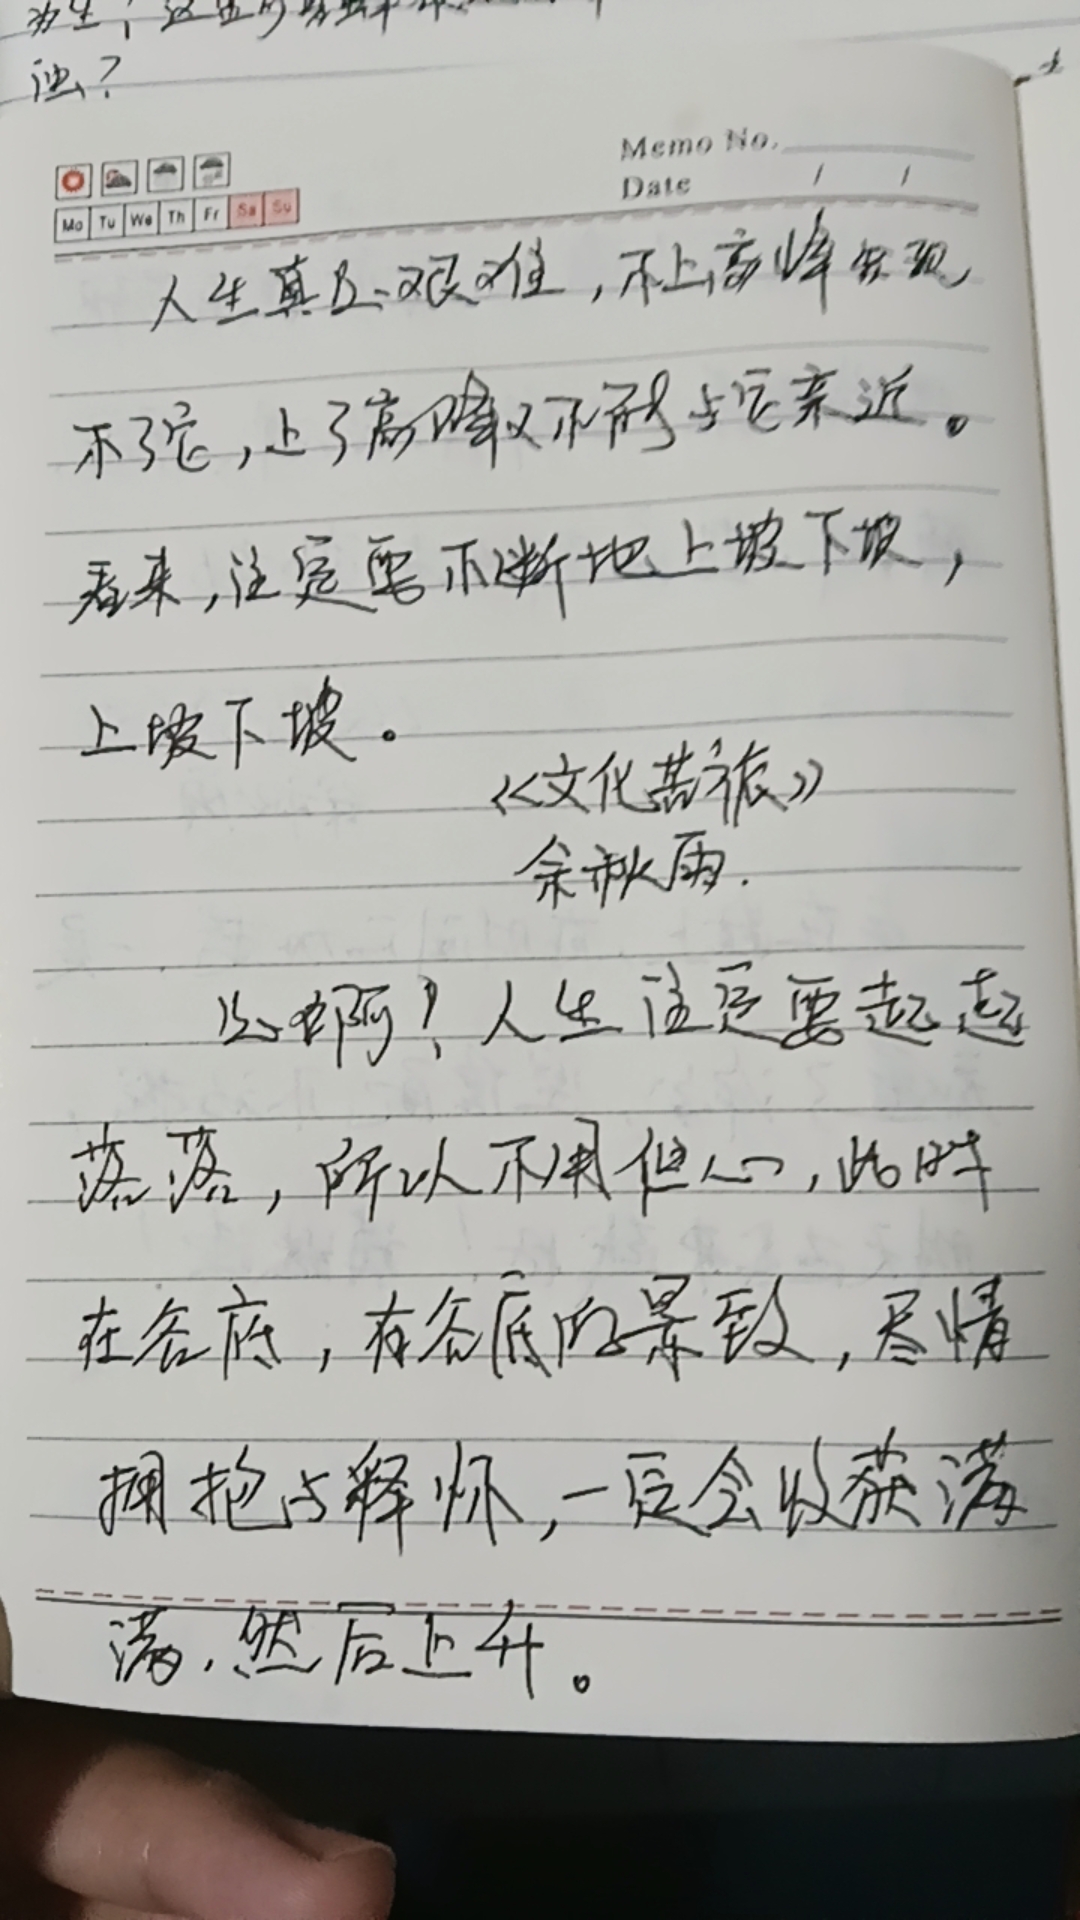 浊？
Memo No.
Date / /
Mo Tu We Th Fr Sa Su
人生真是艰难，不上高峰发现
不了它，上了高峰又不能与它亲近。
看来，注定要不断地上坡下坡，
上坡下坡。
《文化苦旅》
余秋雨.
是啊！人生注定要起起
落落，所以不用担心，此时
在谷底，有谷底的景致，尽情
拥抱与释怀，一定会收获满
满，然后上升。